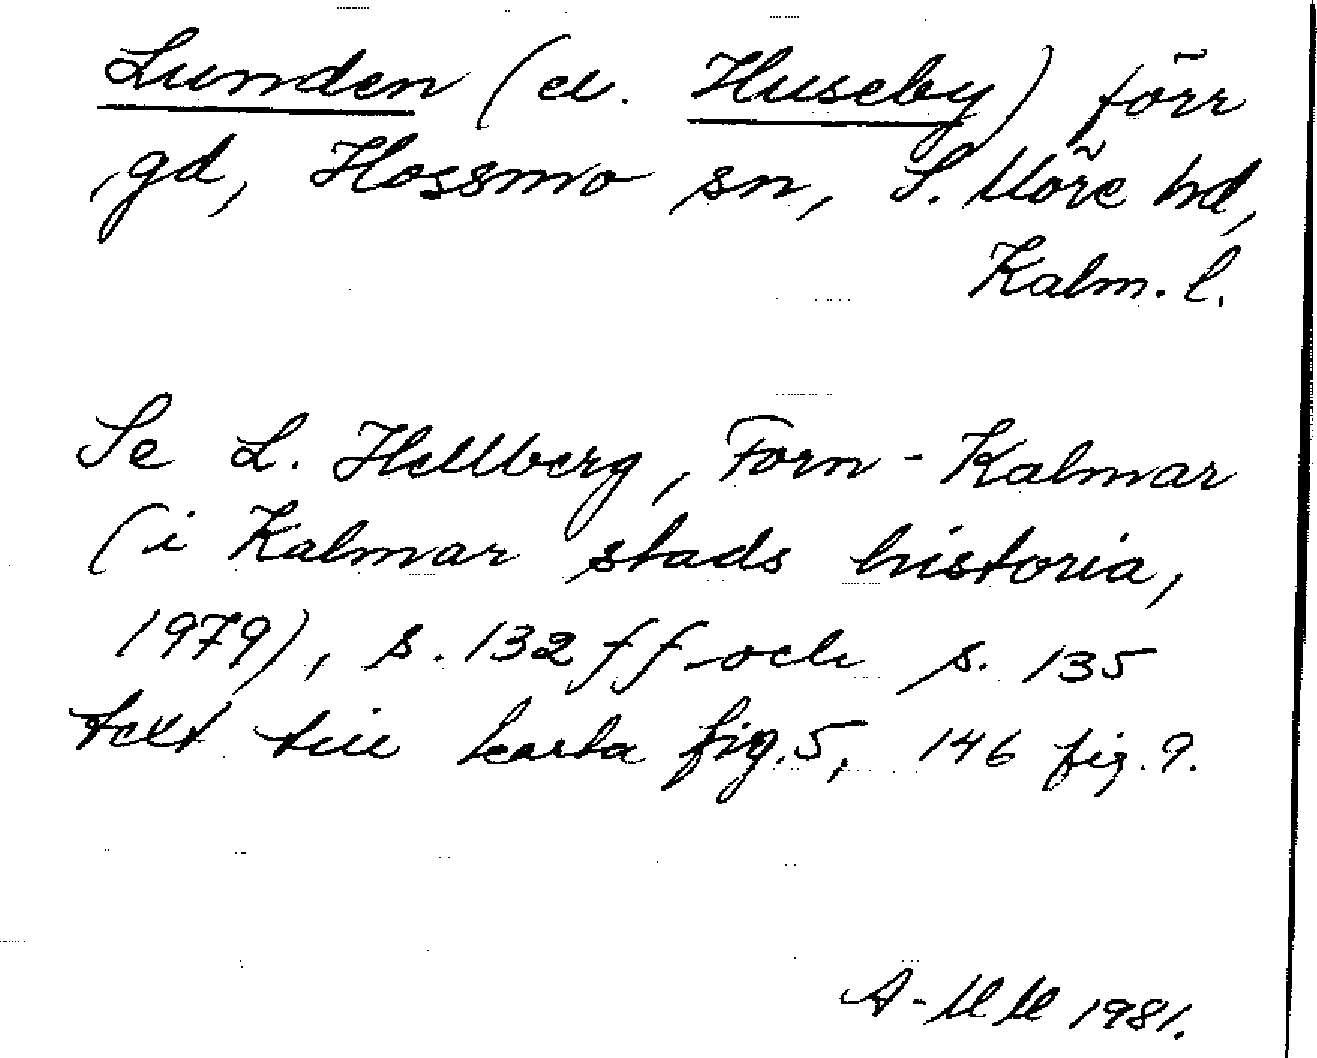 Lunden (el. Huseby) förr
gd, Hossmo sn, S. Möre hd,
Kalm. l.
Se L. Hellberg, Forn-Kalmar
(i Kalmar stads historia,
1979), s. 132 ff och s. 135
text till karta fig. 5, 146 fig. 9.
A-MM 1981.